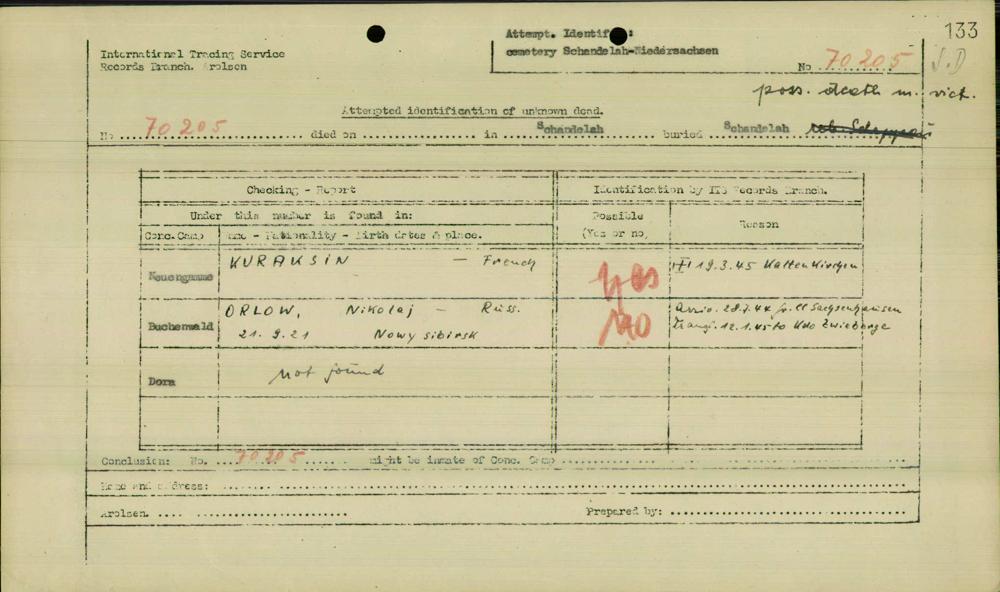 133
International Tracing Service
Records Branch. Arolsen
Attempt. Identif :
cemetery Schandelah-Niedersachsen
No 70205
poss. death m. vict.
Attempted identification of unknown dead.
No 70205 died on in Schandelah buried Schandelah
Checking - Report Identification by ITS Records Branch.
Under this number is found in: Possible (Yes or no) Reason
Conc.Camp Name - Nationality - Birth dates & place.
Neuengamme KURAKSIN - French yes 19.3.45 Kaltenkirchen
Buchenwald ORLOW, Nikolaj - Russ. NO Arriv. 28.7.44 fr. CC Sachsenhausen
21.9.21 Nowysibirsk Transf. 12.1.45 to Kdo Zwieberge
Dora not found
Conclusion: No. 70205 might be inmate of Conc. Camp
Name and address:
Arolsen. Prepared by: